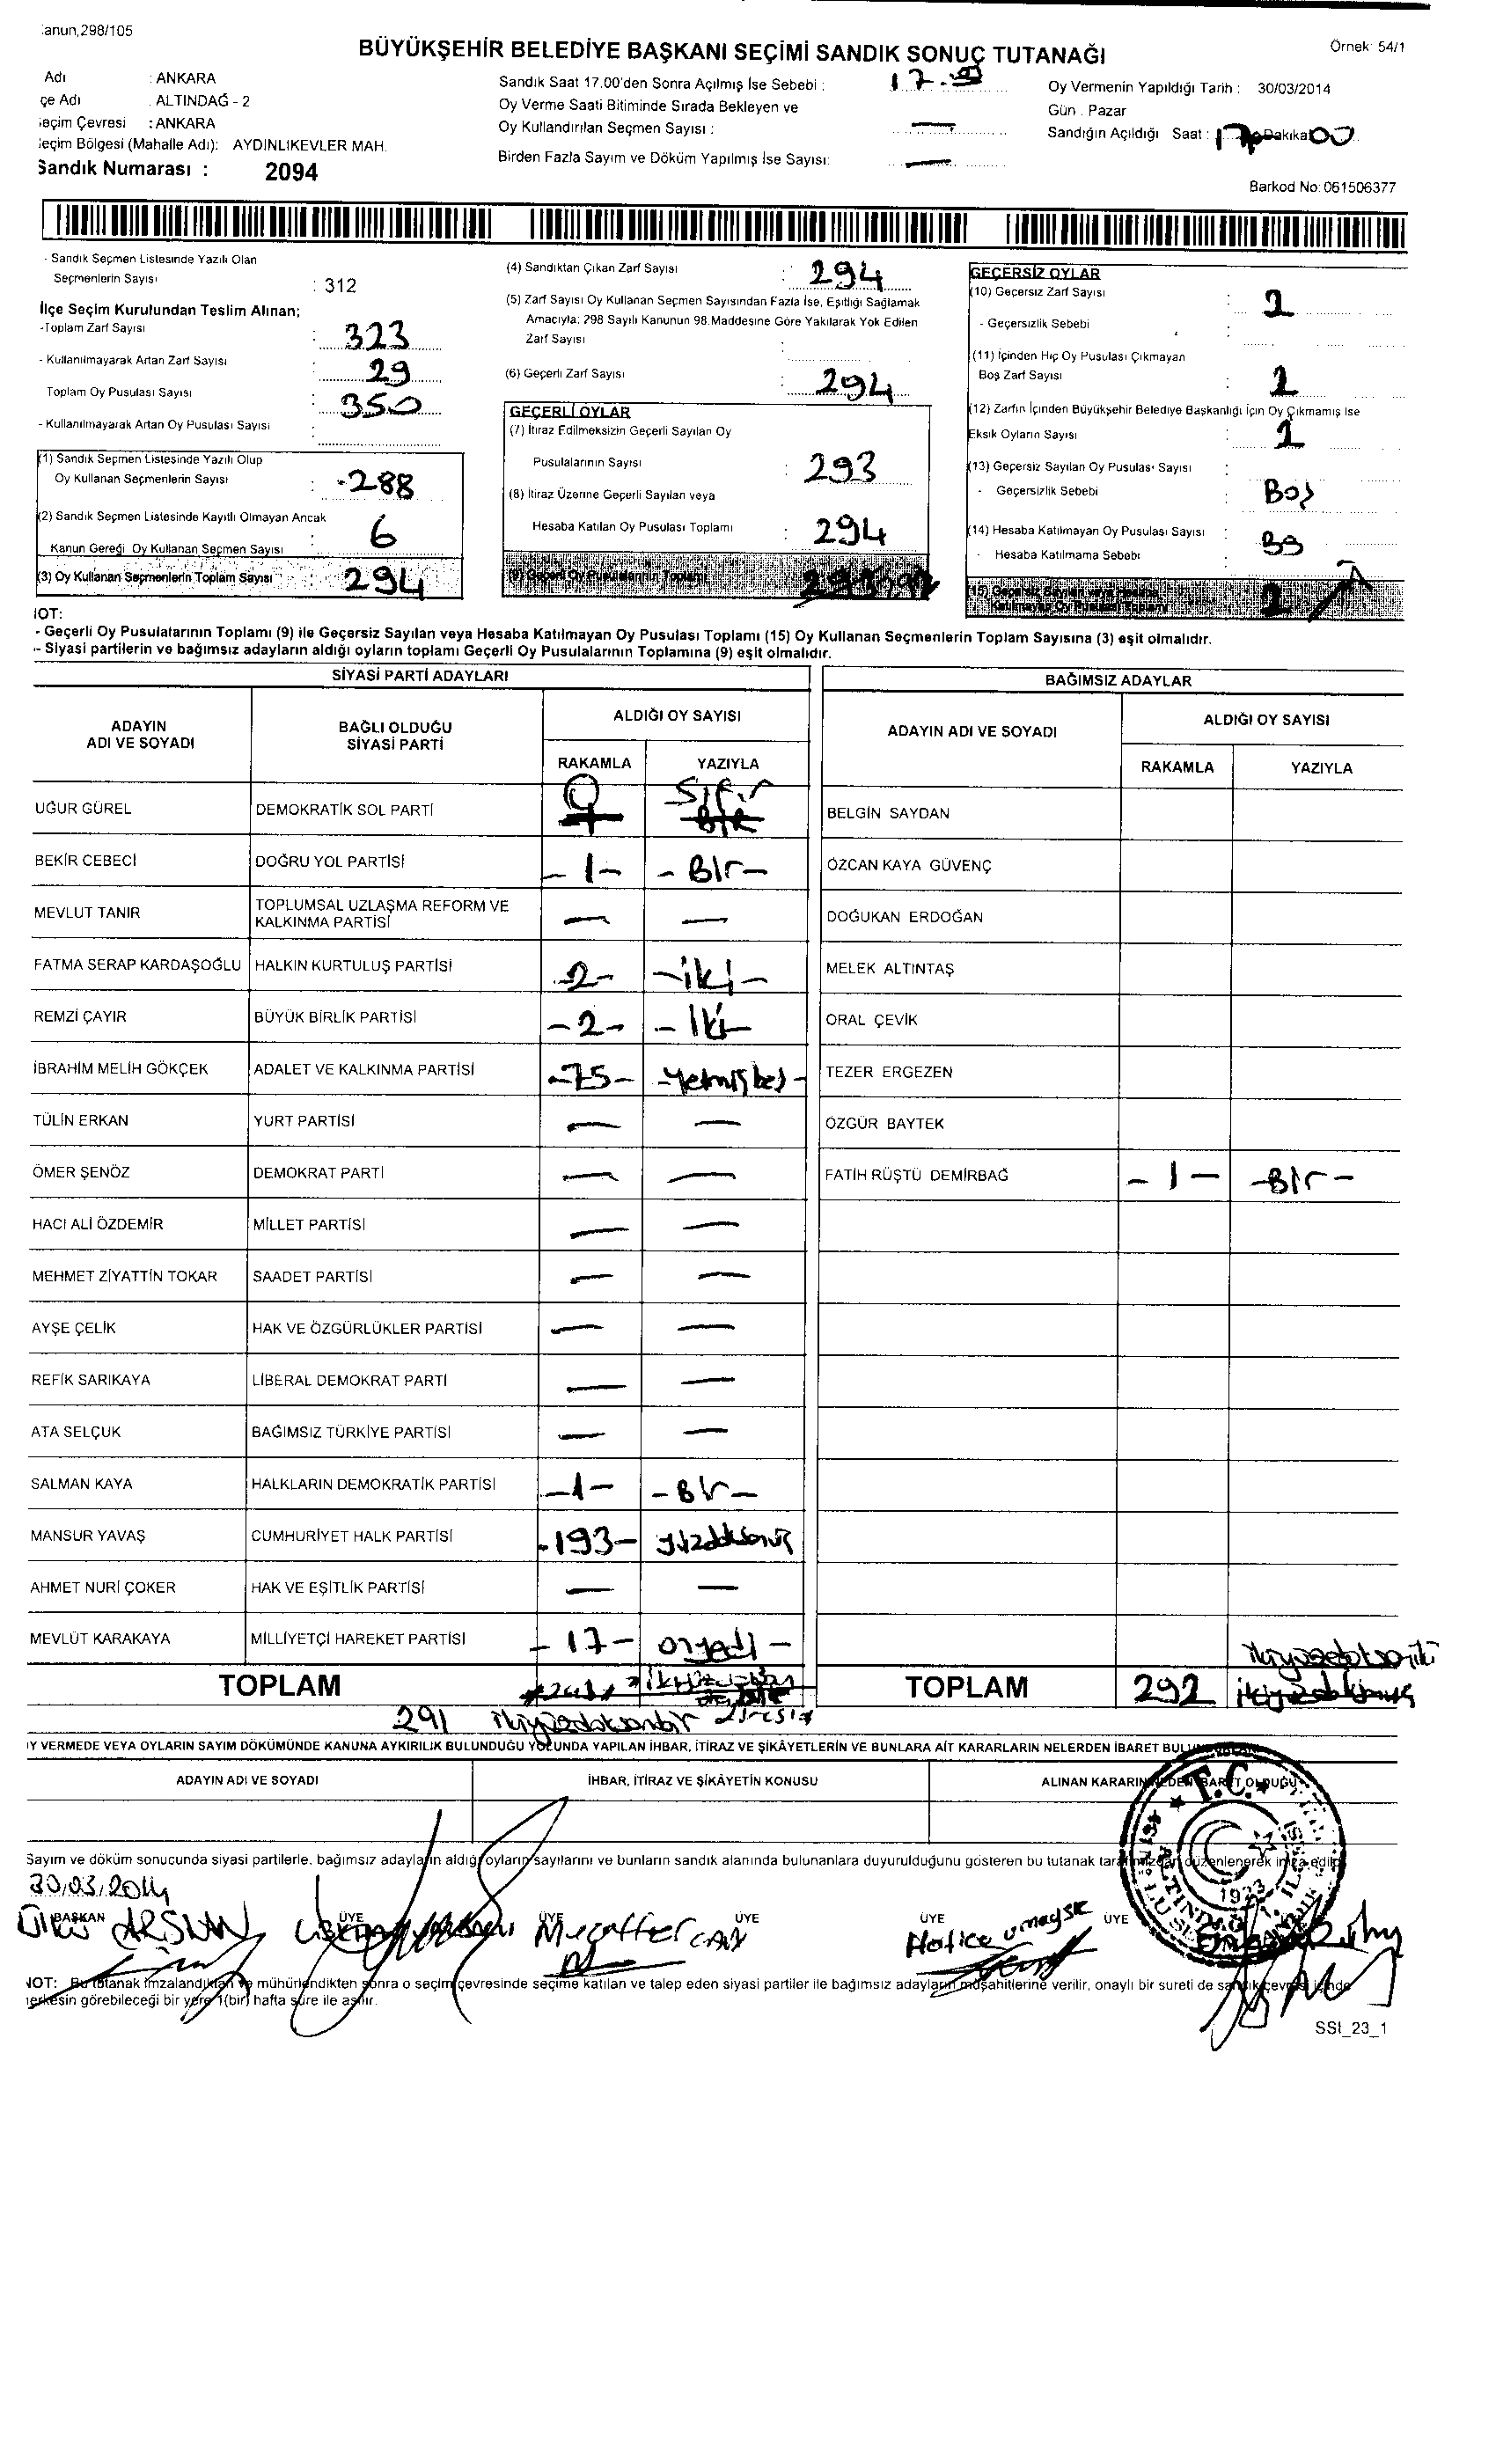 anun,298/105
BÜYÜKŞEHİR BELEDİYE BAŞKANI SEÇİMİ SANDIK SONUÇ TUTANAĞI
Örnek: 54/1
Adı : ANKARA
çe Adı : ALTINDAĞ - 2
eçim Çevresi : ANKARA
eçim Bölgesi (Mahalle Adı): AYDINLIKEVLER MAH.
Sandık Numarası : 2094
Sandık Saat 17.00'den Sonra Açılmış İse Sebebi :
Oy Verme Saati Bitiminde Sırada Bekleyen ve
Oy Kullandırılan Seçmen Sayısı : —
Birden Fazla Sayım ve Döküm Yapılmış İse Sayısı: —
Oy Vermenin Yapıldığı Tarih : 30/03/2014
Gün : Pazar
Sandığın Açıldığı Saat : 17 Dakika 00
Barkod No: 061506377
- Sandık Seçmen Listesinde Yazılı Olan
Seçmenlerin Sayısı : 312
İlçe Seçim Kurulundan Teslim Alınan;
-Toplam Zarf Sayısı : 323
- Kullanılmayarak Artan Zarf Sayısı : 29
Toplam Oy Pusulası Sayısı : 350
- Kullanılmayarak Artan Oy Pusulası Sayısı :
(1) Sandık Seçmen Listesinde Yazılı Olup
Oy Kullanan Seçmenlerin Sayısı : -288
(2) Sandık Seçmen Listesinde Kayıtlı Olmayan Ancak
Kanun Gereği Oy Kullanan Seçmen Sayısı : 6
(3) Oy Kullanan Seçmenlerin Toplam Sayısı : 294
(4) Sandıktan Çıkan Zarf Sayısı : 294
(5) Zarf Sayısı Oy Kullanan Seçmen Sayısından Fazla İse, Eşitliği Sağlamak
Amacıyla; 298 Sayılı Kanunun 98.Maddesine Göre Yakılarak Yok Edilen
Zarf Sayısı :
(6) Geçerli Zarf Sayısı : 294
GEÇERLİ OYLAR
(7) İtiraz Edilmeksizin Geçerli Sayılan Oy
Pusulalarının Sayısı : 293
(8) İtiraz Üzerine Geçerli Sayılan veya
Hesaba Katılan Oy Pusulası Toplamı : 294
(9) Geçerli Oy Pusulalarının Toplamı
GEÇERSİZ OYLAR
(10) Geçersiz Zarf Sayısı :
- Geçersizlik Sebebi :
(11) İçinden Hiç Oy Pusulası Çıkmayan
Boş Zarf Sayısı :
(12) Zarfın İçinden Büyükşehir Belediye Başkanlığı İçin Oy Çıkmamış İse
Eksik Oyların Sayısı :
(13) Geçersiz Sayılan Oy Pusulası Sayısı :
- Geçersizlik Sebebi : Boş
(14) Hesaba Katılmayan Oy Pusulası Sayısı :
- Hesaba Katılmama Sebebi :
(15) Geçersiz Sayılan veya Hesaba
Katılmayan Oy Pusulası Toplamı
NOT:
- Geçerli Oy Pusulalarının Toplamı (9) ile Geçersiz Sayılan veya Hesaba Katılmayan Oy Pusulası Toplamı (15) Oy Kullanan Seçmenlerin Toplam Sayısına (3) eşit olmalıdır.
- Siyasi partilerin ve bağımsız adayların aldığı oyların toplamı Geçerli Oy Pusulalarının Toplamına (9) eşit olmalıdır.
SİYASİ PARTİ ADAYLARI
BAĞIMSIZ ADAYLAR
ADAYIN ADI VE SOYADI
BAĞLI OLDUĞU SİYASİ PARTİ
ALDIĞI OY SAYISI
RAKAMLA YAZIYLA
ADAYIN ADI VE SOYADI
ALDIĞI OY SAYISI
RAKAMLA YAZIYLA
UĞUR GÜREL DEMOKRATİK SOL PARTİ 0 Sıfır BELGİN SAYDAN
BEKİR CEBECİ DOĞRU YOL PARTİSİ -1- -Bir- ÖZCAN KAYA GÜVENÇ
MEVLUT TANIR TOPLUMSAL UZLAŞMA REFORM VE KALKINMA PARTİSİ — — DOĞUKAN ERDOĞAN
FATMA SERAP KARDAŞOĞLU HALKIN KURTULUŞ PARTİSİ -2- -iki- MELEK ALTINTAŞ
REMZİ ÇAYIR BÜYÜK BİRLİK PARTİSİ -2- -İki- ORAL ÇEVİK
İBRAHİM MELİH GÖKÇEK ADALET VE KALKINMA PARTİSİ -75- -Yetmişbeş- TEZER ERGEZEN
TÜLİN ERKAN YURT PARTİSİ — — ÖZGÜR BAYTEK
ÖMER ŞENÖZ DEMOKRAT PARTİ — — FATİH RÜŞTÜ DEMİRBAĞ -1- -Bir-
HACI ALİ ÖZDEMİR MİLLET PARTİSİ — —
MEHMET ZİYATTİN TOKAR SAADET PARTİSİ — —
AYŞE ÇELİK HAK VE ÖZGÜRLÜKLER PARTİSİ — —
REFİK SARIKAYA LİBERAL DEMOKRAT PARTİ — —
ATA SELÇUK BAĞIMSIZ TÜRKİYE PARTİSİ — —
SALMAN KAYA HALKLARIN DEMOKRATİK PARTİSİ -1- -Bir-
MANSUR YAVAŞ CUMHURİYET HALK PARTİSİ -193-
AHMET NURİ ÇOKER HAK VE EŞİTLİK PARTİSİ — —
MEVLÜT KARAKAYA MİLLİYETÇİ HAREKET PARTİSİ -17- onyedi-
TOPLAM
TOPLAM 292 ikiyüzdoksaniki
291 ikiyüzdoksanbir
OY VERMEDE VEYA OYLARIN SAYIM DÖKÜMÜNDE KANUNA AYKIRILIK BULUNDUĞU YOLUNDA YAPILAN İHBAR, İTİRAZ VE ŞİKÂYETLERİN VE BUNLARA AİT KARARLARIN NELERDEN İBARET
ADAYIN ADI VE SOYADI
İHBAR, İTİRAZ VE ŞİKÂYETİN KONUSU
ALINAN KARARIN NEDEN İBARET OLDUĞU
T.C.
1923
Sayım ve döküm sonucunda siyasi partilerle, bağımsız adayların aldığı oyların sayılarını ve bunların sandık alanında bulunanlara duyurulduğunu gösteren bu tutanak tarafımızdan düzenlenerek imza edildi
30.03.2014
BAŞKAN ÜYE ÜYE ÜYE ÜYE ÜYE
Ülkü ARSUN Muzaffer CAN Hatice
NOT: Bu tutanak imzalandıktan ve mühürlendikten sonra o seçim çevresinde seçime katılan ve talep eden siyasi partiler ile bağımsız adayların müşahitlerine verilir, onaylı bir sureti de sandık çevresi içinde
herkesin görebileceği bir yere 1(bir) hafta süre ile asılır.
SSI_23_1